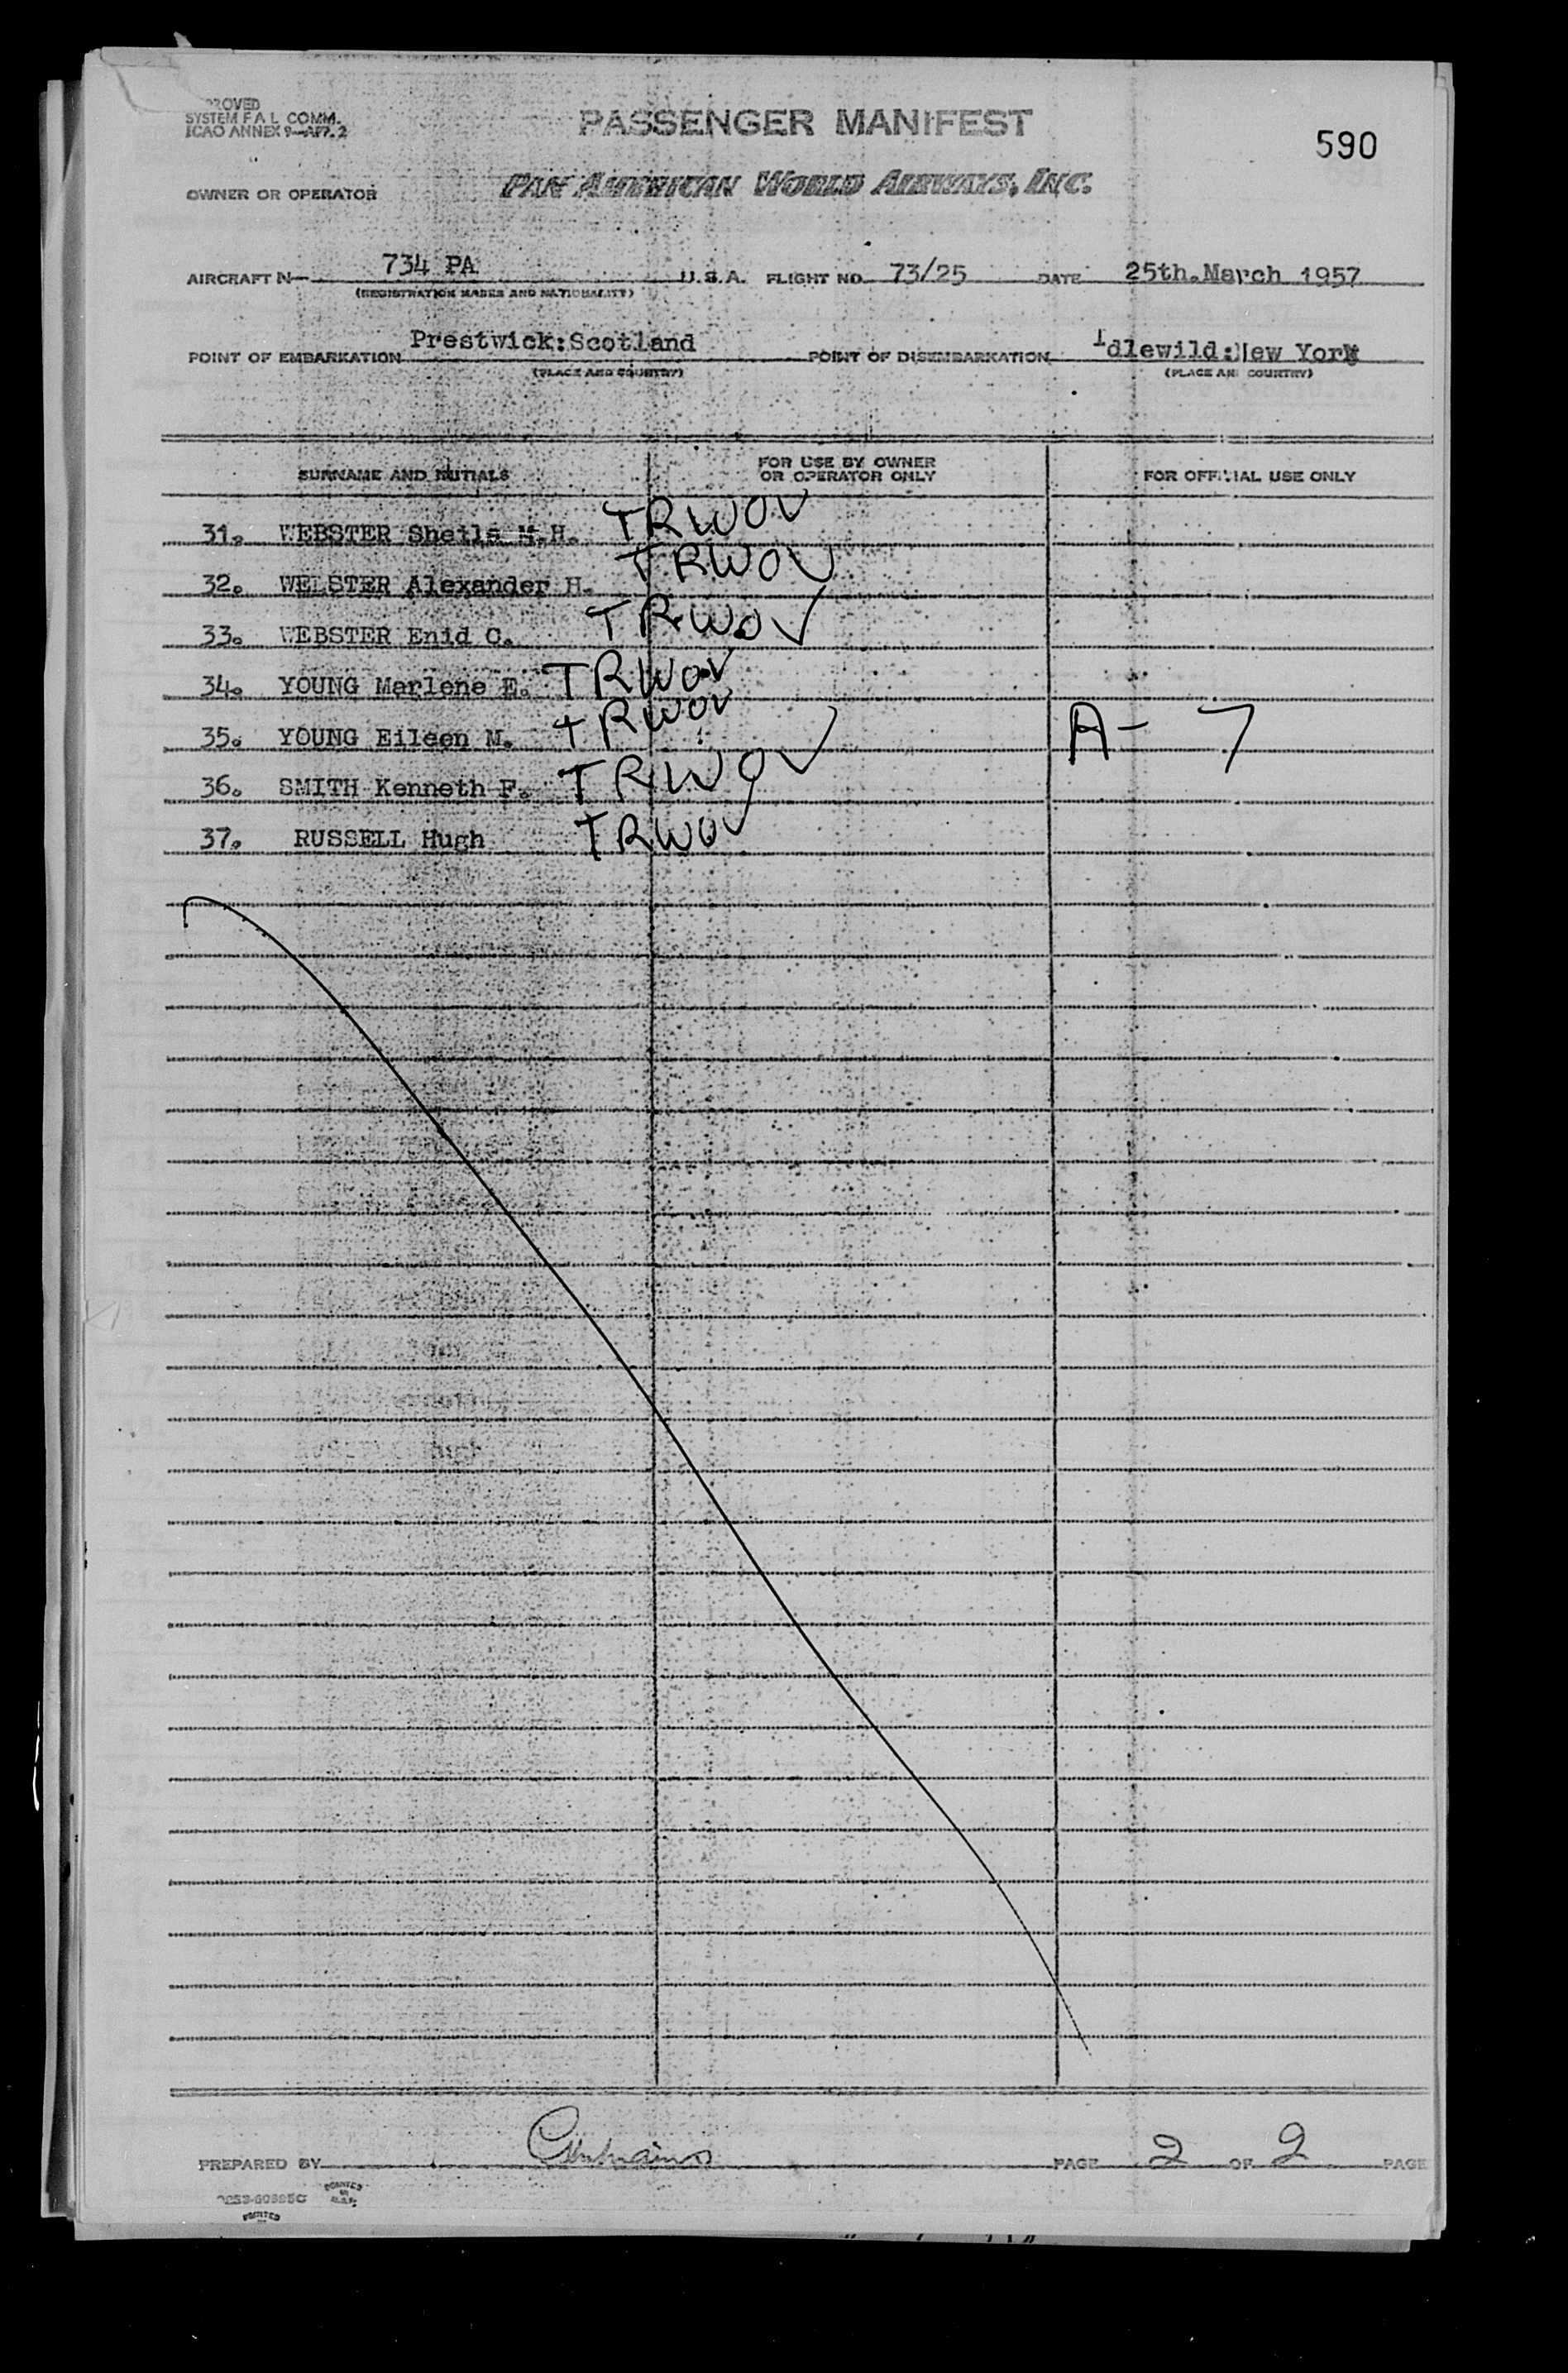 PROVED
SYSTEM F A L COMM.
ICAO ANNEX 9—APP. 2
PASSENGER MANIFEST
590
OWNER OR OPERATOR
PAN AMERICAN WORLD AIRWAYS, INC.
AIRCRAFT N— 734 PA U.S.A. FLIGHT NO. 73/25 DATE 25th.March 1957
(REGISTRATION MARKS AND NATIONALITY)
POINT OF EMBARKATION Prestwick:Scotland POINT OF DISEMBARKATION Idlewild:New York
(PLACE AND COUNTRY) (PLACE AND COUNTRY)
SURNAME AND INITIALS FOR USE BY OWNER OR OPERATOR ONLY FOR OFFICIAL USE ONLY
31. WEBSTER Sheila M.H. TRWOV
32. WEBSTER Alexander H. TRWOV
33. WEBSTER Enid C. TRWOV
34. YOUNG Marlene E. TRWOV
35. YOUNG Eileen M. TRWOV A- 7
36. SMITH Kenneth F. TRWOV
37. RUSSELL Hugh TRWOV
PREPARED BY PAGE 2 OF 2 PAGE
PRINTED IN U.S.A.
PRINTED